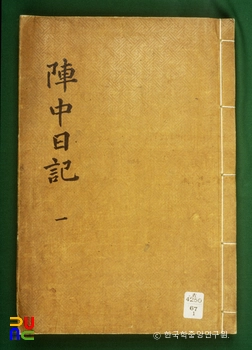 陣中日記
一
4250
67
1
© 한국학중앙연구원.